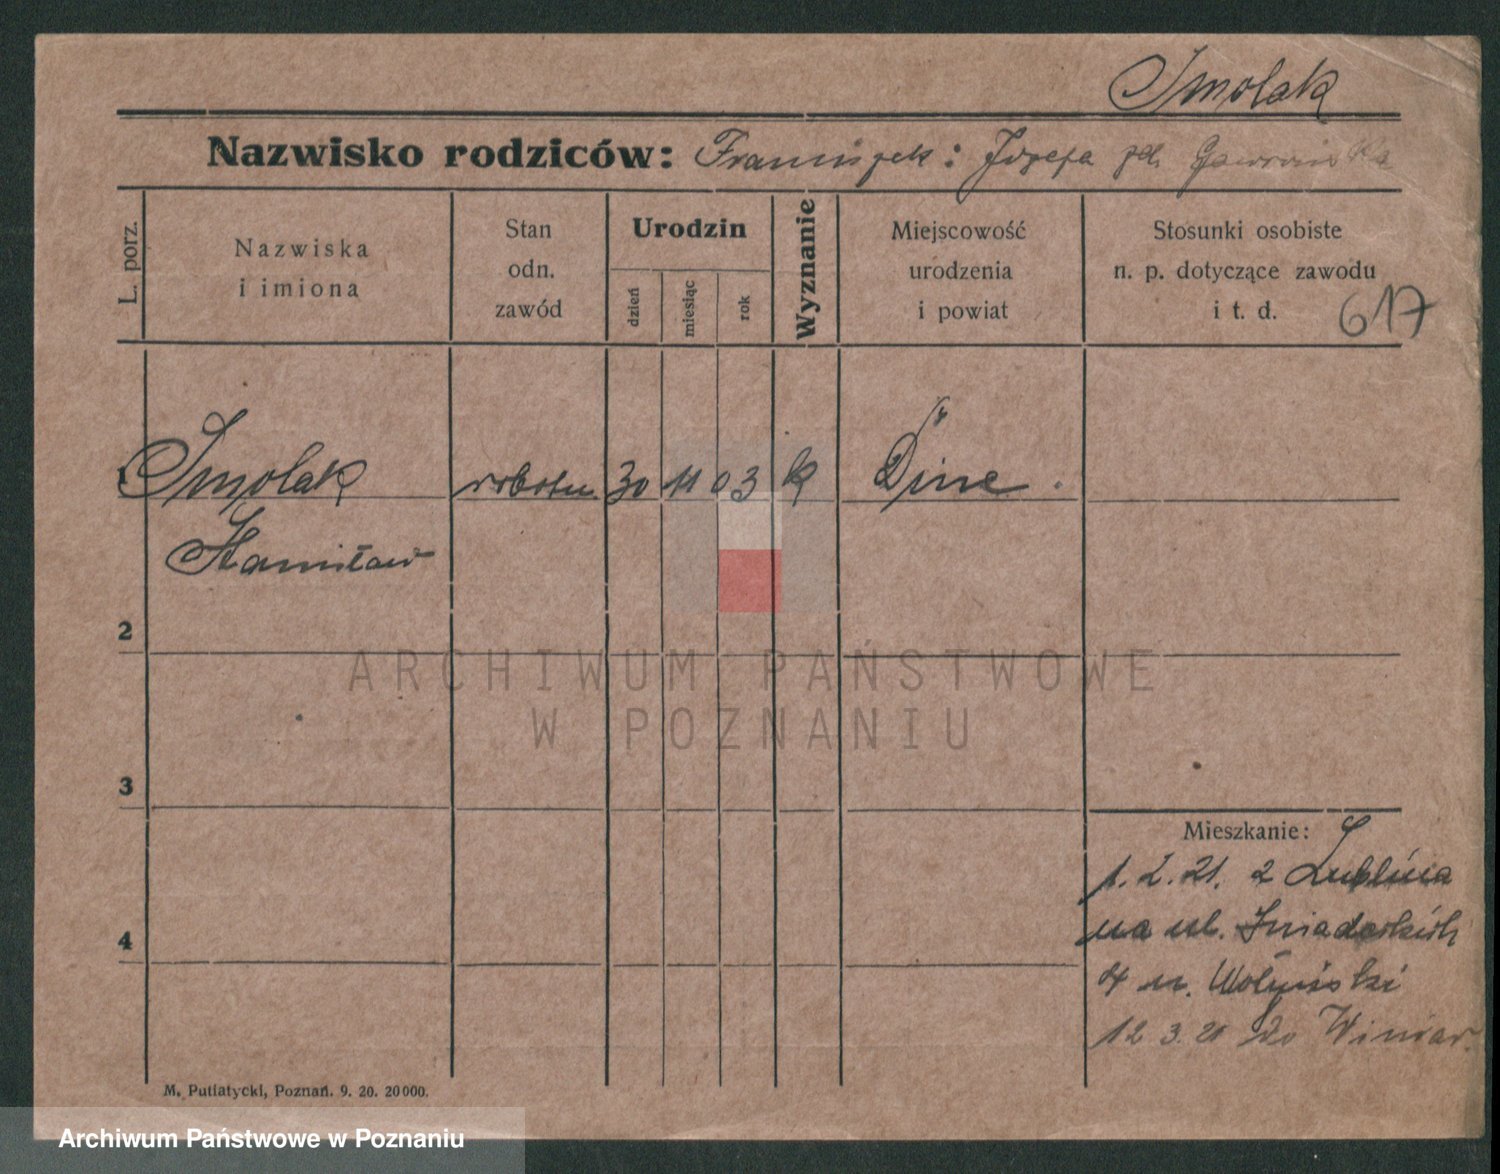 Smolak
Nazwisko rodziców: Franciszek: Józefa zd.
L. porz.
Nazwiska
i imiona
Stan
odn.
zawód
Urodzin
dzień
miesiąc
rok
Wyznanie
Miejscowość
urodzenia
i powiat
Stosunki osobiste
n. p. dotyczące zawodu
i t. d.
617
1 Smolak robotn. 30 11 03 k
Stanisław
2
ARCHIWUM PAŃSTWOWE
W POZNANIU
3
Mieszkanie:
1. 2. 21. z Lublina
na ul. Śniadeckich
4
4 u. Wołyński
12 3. 21 do Winiar.
M. Putiatycki, Poznań. 9. 20. 20000.
Archiwum Państwowe w Poznaniu